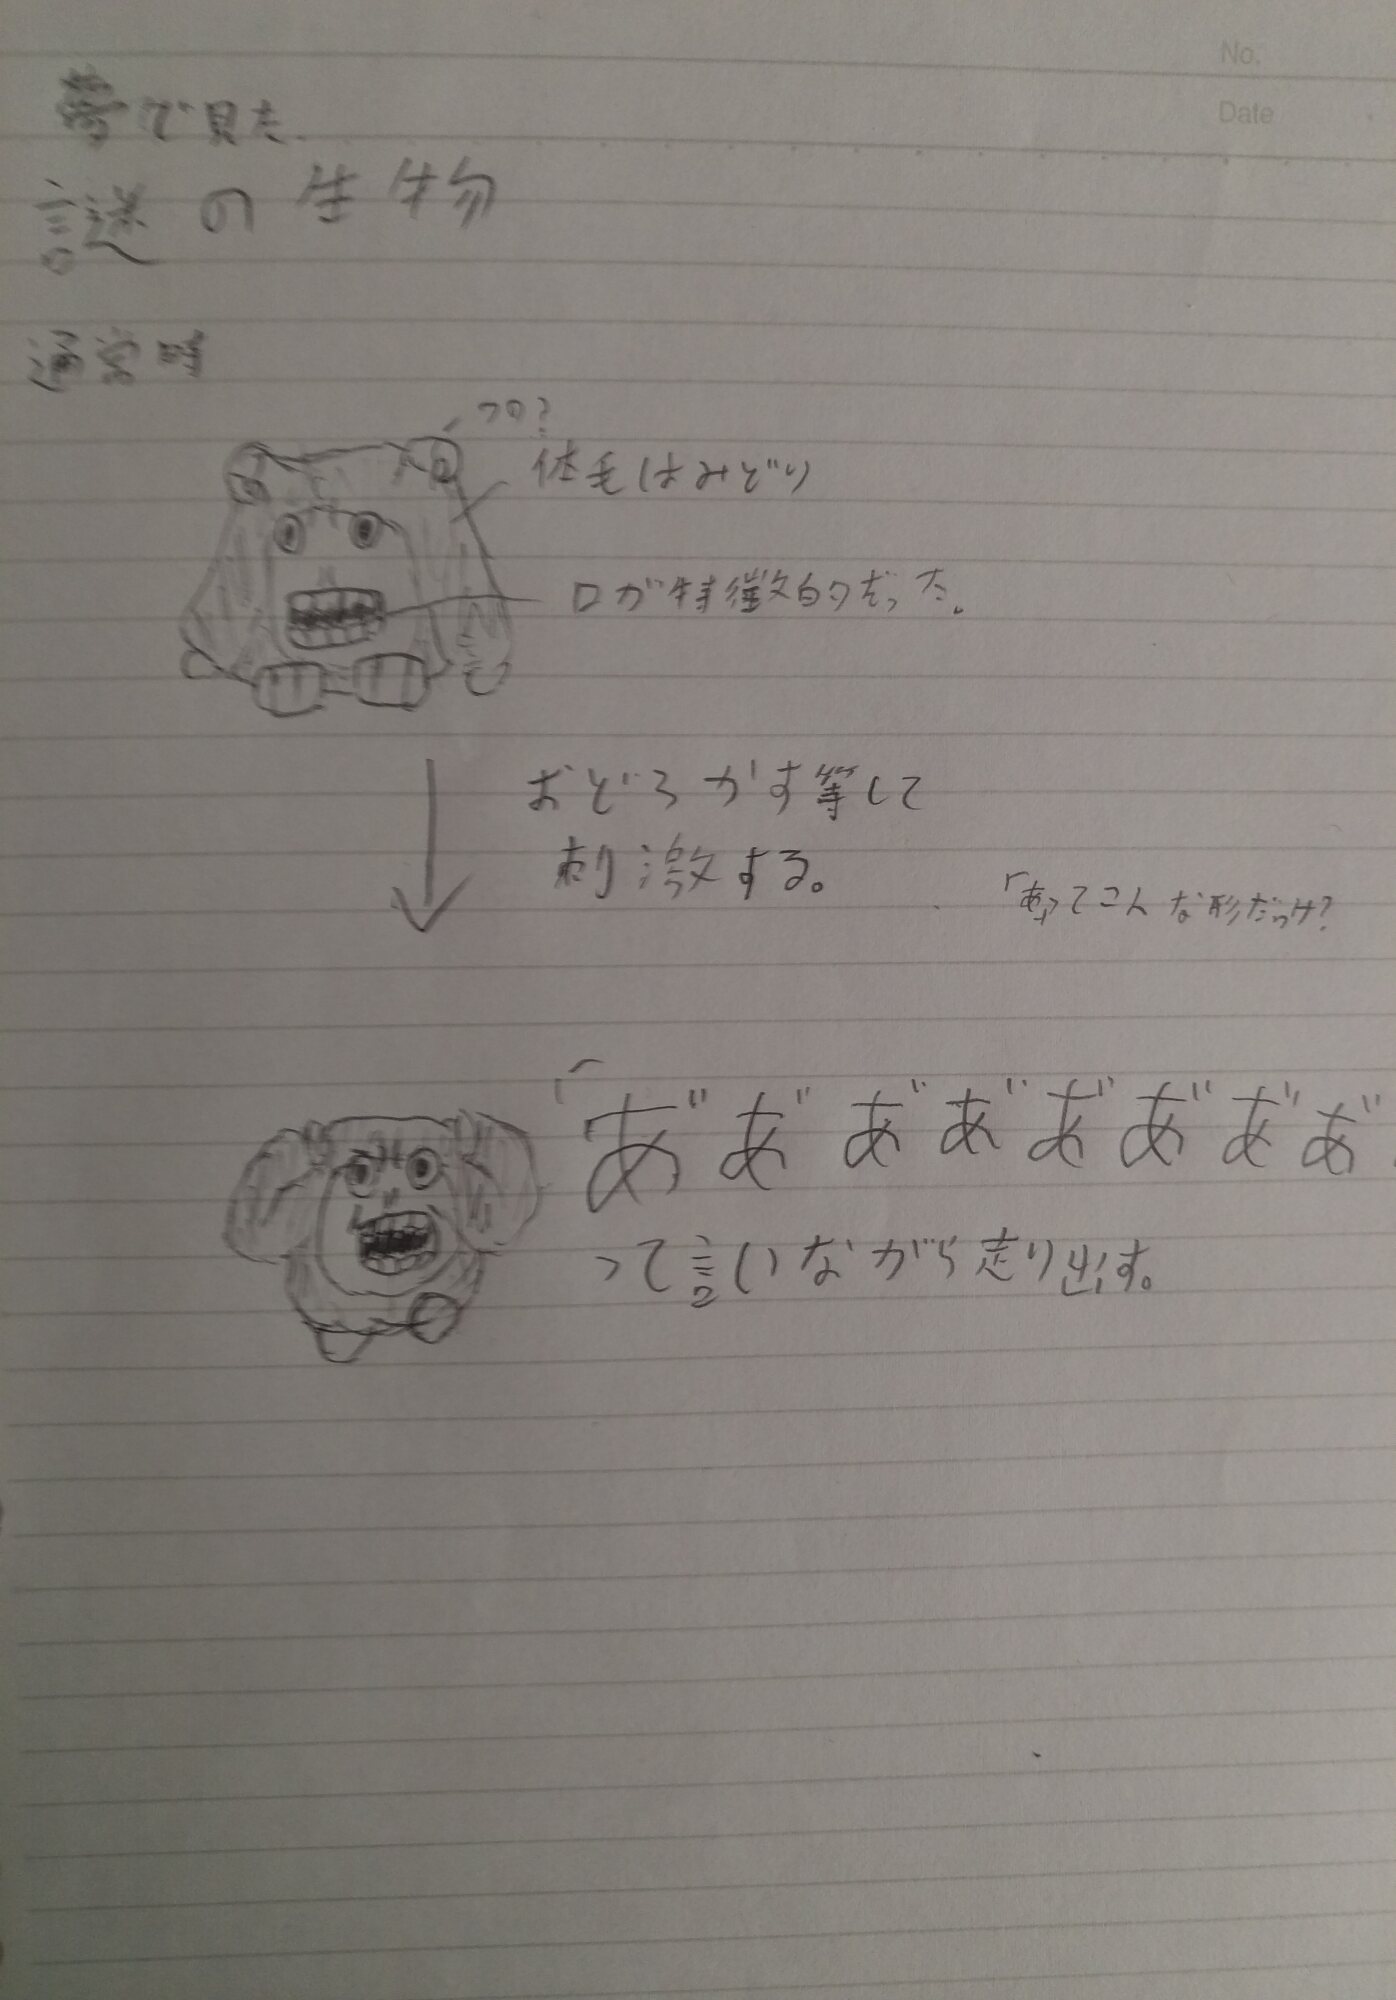 No.
Date
夢で見た
謎の生物
通常時
体毛はみどり
口が特徴的だった。
おどろかす等して
刺激する。
「あってこんな形だっけ?
「あ゛あ゛あ゛あ゛あ゛あ゛あ゛あ゛
って言いながら走り出す。